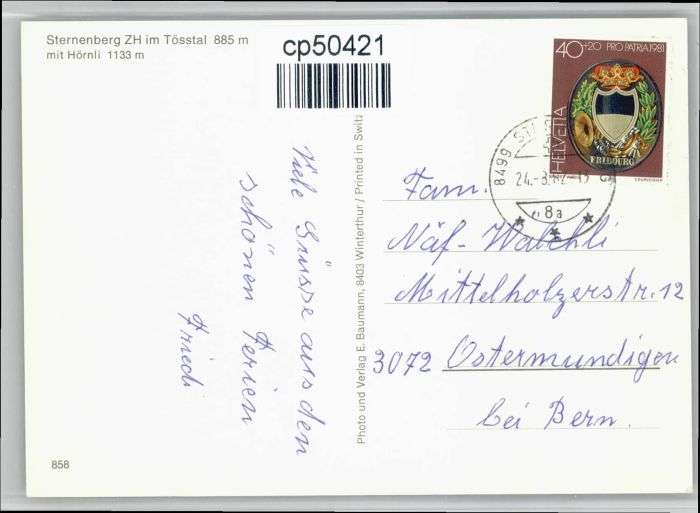 Sternenberg ZH im Tösstal 885 m
mit Hörnli 1133 m
cp50421
40+20 PRO PATRIA 1981
HELVETIA
FRIBOURG
8499
24.-3.
8a
Viele Grüsse aus den
schönen Ferien
Photo und Verlag E. Baumann, 8403 Winterthur / Printed in Switz
Fam.
Näf-Wälchli
Mittelholzerstr. 12
3072 Ostermundigen
bei Bern.
858